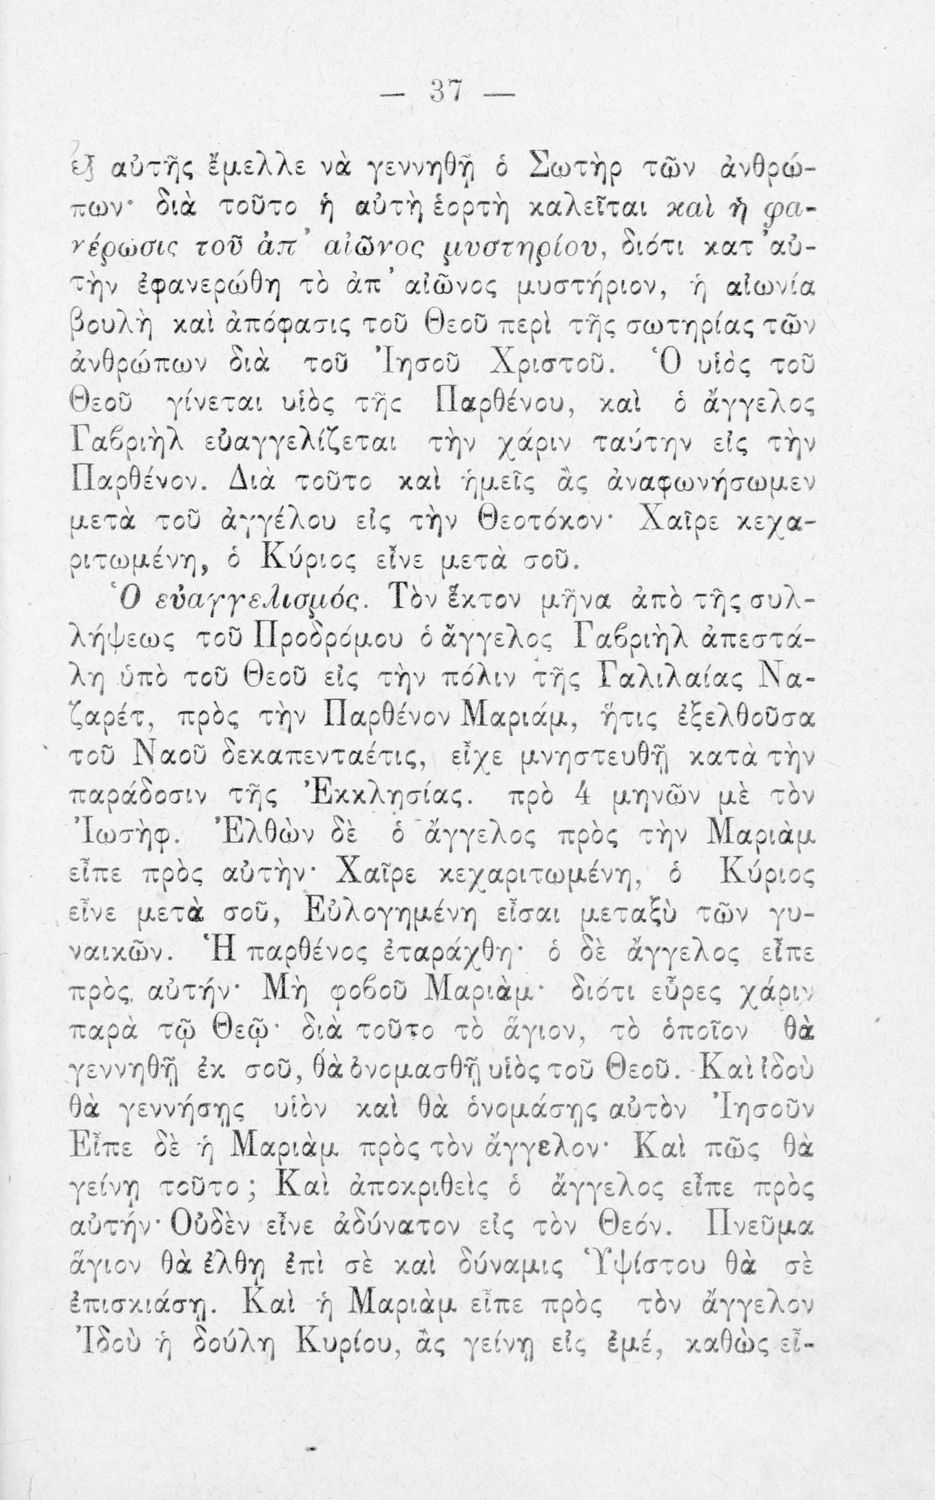 — 37 —
ἐξ αὐτῆς ἔμελλε νὰ γεννηθῇ ὁ Σωτὴρ τῶν ἀνθρώ-
πων· διὰ τοῦτο ἡ αὐτὴ ἑορτὴ καλεῖται καὶ ἡ φα-
νέρωσις τοῦ ἀπ' αἰῶνος μυστηρίου, διότι κατ' αὐ-
τὴν ἐφανερώθη τὸ ἀπ' αἰῶνος μυστήριον, ἡ αἰωνία
βουλὴ καὶ ἀπόφασις τοῦ Θεοῦ περὶ τῆς σωτηρίας τῶν
ἀνθρώπων διὰ τοῦ Ἰησοῦ Χριστοῦ. Ὁ υἱὸς τοῦ
Θεοῦ γίνεται υἱὸς τῆς Παρθένου, καὶ ὁ ἄγγελος
Γαβριὴλ εὐαγγελίζεται τὴν χάριν ταύτην εἰς τὴν
Παρθένον. Διὰ τοῦτο καὶ ἡμεῖς ἂς ἀναφωνήσωμεν
μετὰ τοῦ ἀγγέλου εἰς τὴν Θεοτόκον· Χαῖρε κεχα-
ριτωμένη, ὁ Κύριος εἶνε μετὰ σοῦ.
Ὁ εὐαγγελισμός. Τὸν ἕκτον μῆνα ἀπὸ τῆς συλ-
λήψεως τοῦ Προδρόμου ὁ ἄγγελος Γαβριὴλ ἀπεστά-
λη ὑπὸ τοῦ Θεοῦ εἰς τὴν πόλιν τῆς Γαλιλαίας Να-
ζαρέτ, πρὸς τὴν Παρθένον Μαριάμ, ἥτις ἐξελθοῦσα
τοῦ Ναοῦ δεκαπενταέτις, εἶχε μνηστευθῆ κατὰ τὴν
παράδοσιν τῆς Ἐκκλησίας. πρὸ 4 μηνῶν μὲ τὸν
Ἰωσὴφ. Ἐλθὼν δὲ ὁ ἄγγελος πρὸς τὴν Μαριὰμ
εἶπε πρὸς αὐτὴν· Χαῖρε κεχαριτωμένη, ὁ Κύριος
εἶνε μετὰ σοῦ, Εὐλογημένη εἶσαι μεταξὺ τῶν γυ-
ναικῶν. Ἡ παρθένος ἐταράχθη· ὁ δὲ ἄγγελος εἶπε
πρὸς αὐτήν· Μὴ φοβοῦ Μαριὰμ· διότι εὗρες χάριν
παρὰ τῷ Θεῷ· διὰ τοῦτο τὸ ἅγιον, τὸ ὁποῖον θὰ
γεννηθῇ ἐκ σοῦ, θὰ ὀνομασθῇ υἱὸς τοῦ Θεοῦ. Καὶ ἰδοὺ
θὰ γεννήσῃς υἱὸν καὶ θὰ ὀνομάσῃς αὐτὸν Ἰησοῦν
Εἶπε δὲ ἡ Μαριὰμ πρὸς τὸν ἄγγελον· Καὶ πῶς θὰ
γείνῃ τοῦτο; Καὶ ἀποκριθεὶς ὁ ἄγγελος εἶπε πρὸς
αὐτήν· Οὐδὲν εἶνε ἀδύνατον εἰς τὸν Θεόν. Πνεῦμα
ἅγιον θὰ ἔλθῃ ἐπὶ σὲ καὶ δύναμις Ὑψίστου θὰ σὲ
ἐπισκιάσῃ. Καὶ ἡ Μαριὰμ εἶπε πρὸς τὸν ἄγγελον
Ἰδοὺ ἡ δούλη Κυρίου, ἂς γείνῃ εἰς ἐμέ, καθὼς εἶ-